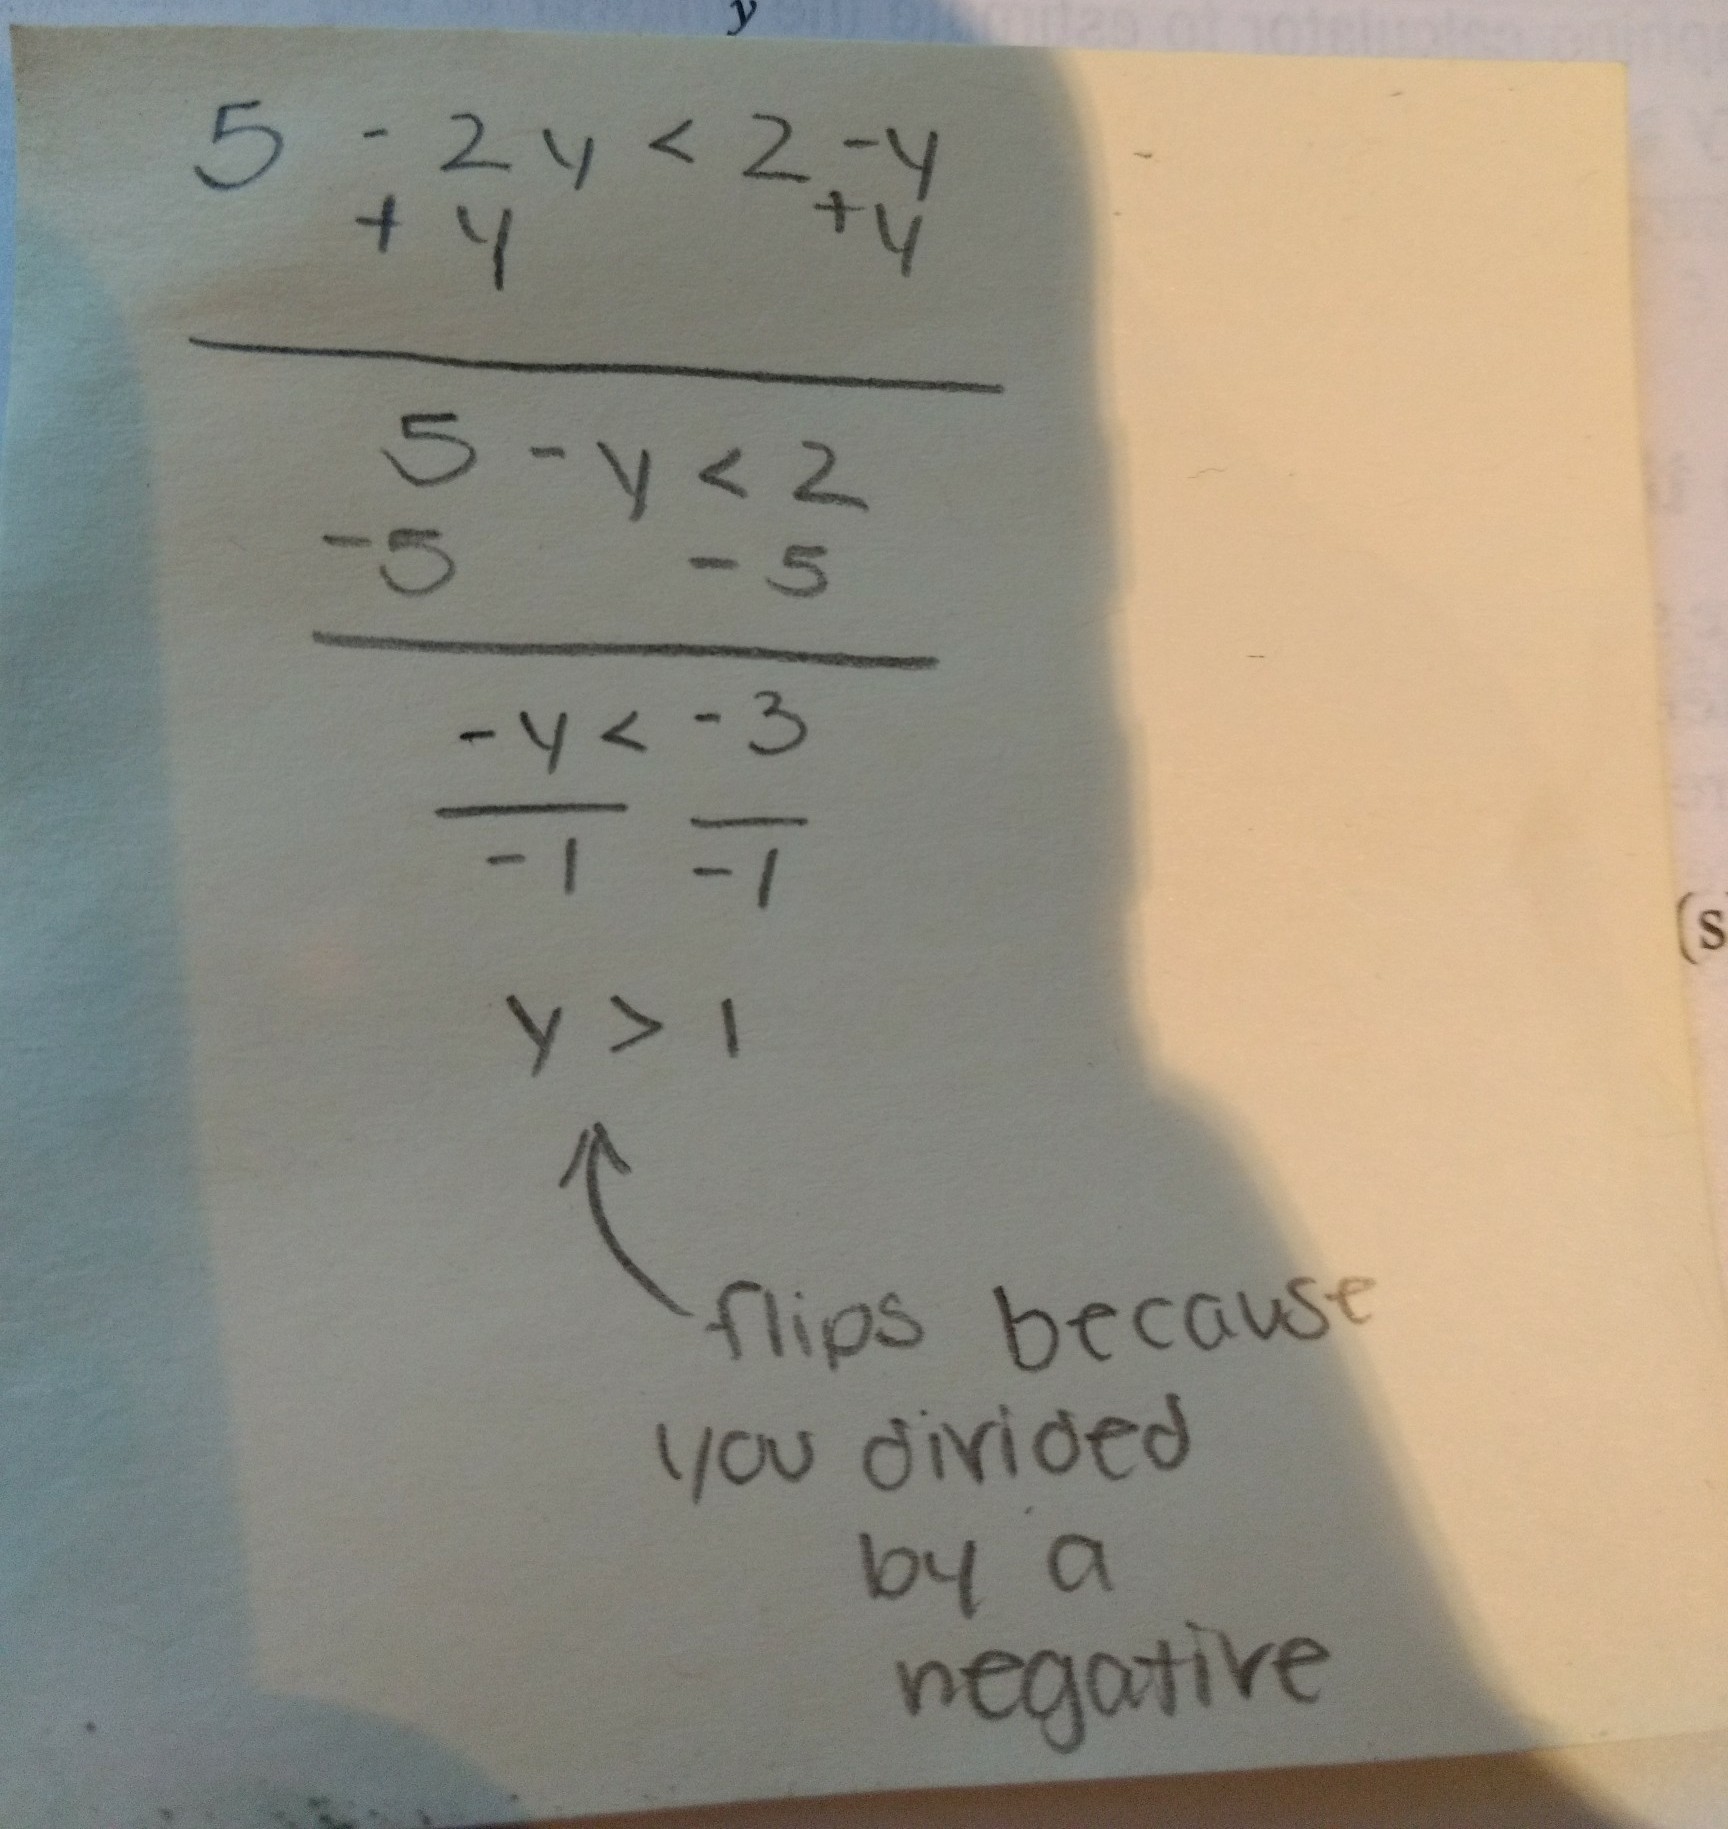 y
5 - 2y < 2 - y
+ y +y
5 - y < 2
-5 - 5
-y < -3
-1 -1
y > 1
flips because
you divided
by a
negative
(s